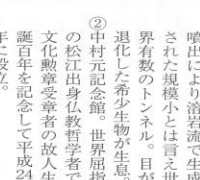 噴出により溶岩流で生成
された規模小とは言え世
界有数のトンネル。目が
退化した希少生物が生息。
②
中村元記念館。世界屈指
の松江出身仏教哲学者で
文化勲章受章者の故人生
誕百年を記念して平成24
年に設立。